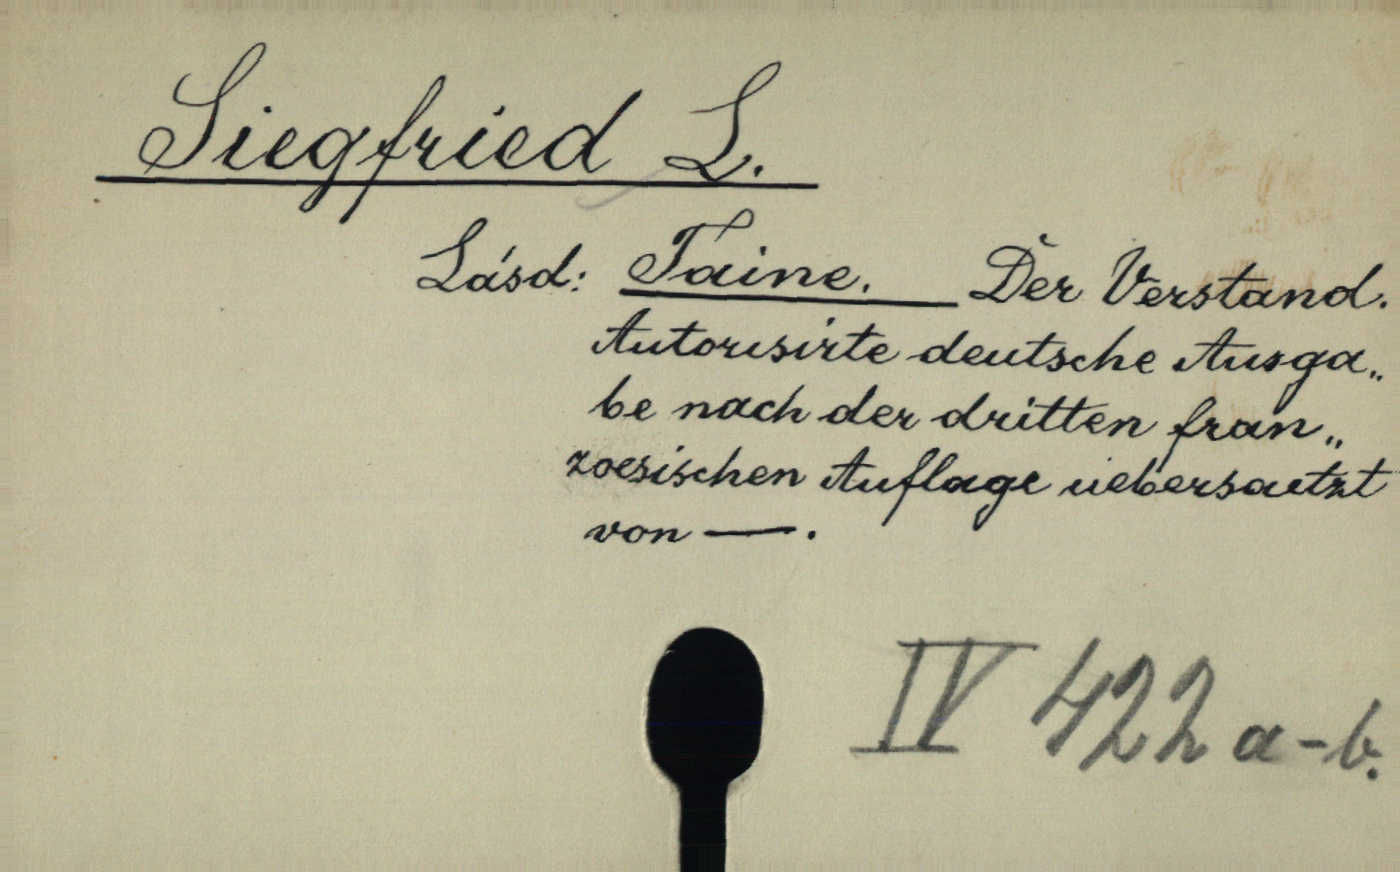 Siegfried L.
Lásd: Taine. Der Verstand.
Autorisirte deutsche Ausga„
be nach der dritten fran„
zoesischen Auflage uebersaetzt
von —.
IV 422 a-b.